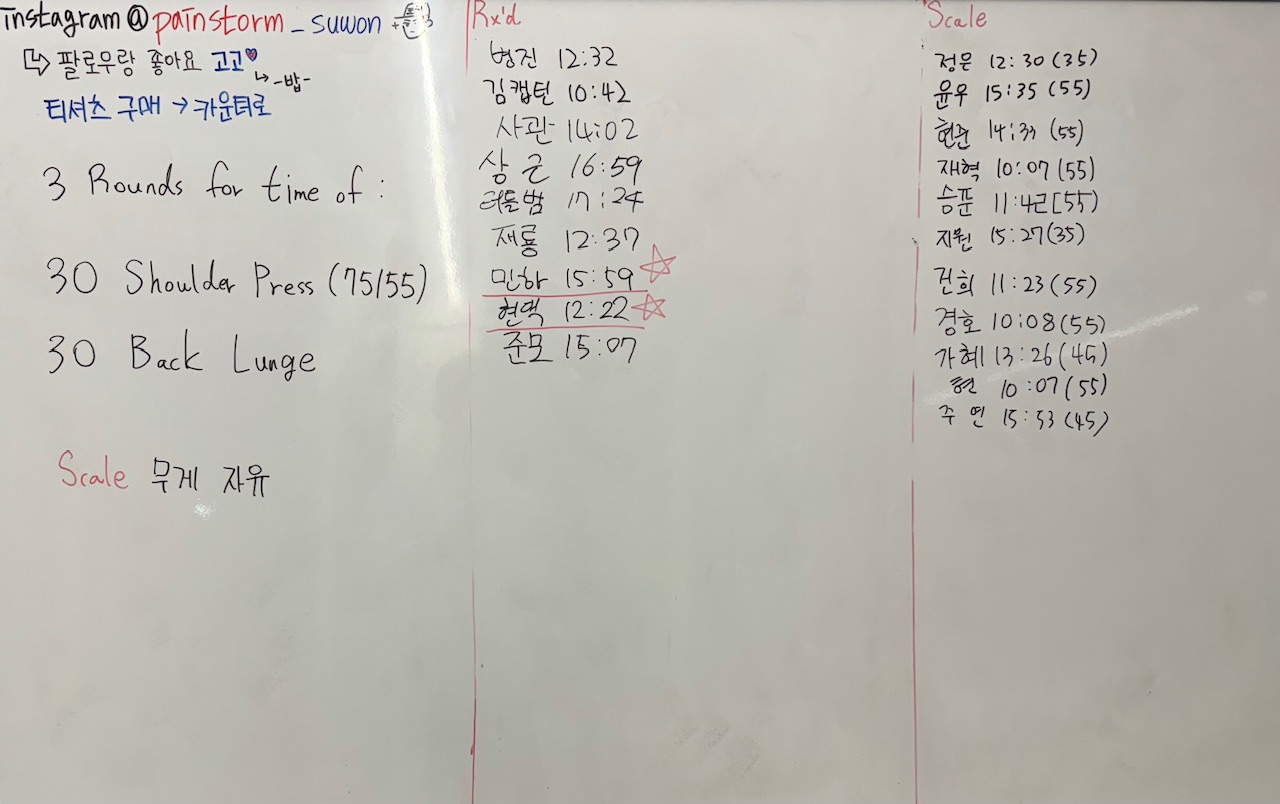 instagram@painstorm_suwon
↳ 팔로우랑 좋아요 고고♥
↳ -밥-
티셔츠 구매 → 카운터로
3 Rounds for time of :
30 Shoulder Press (75/55)
30 Back Lunge
Scale 무게 자유
Rx'd
병진 12:32
김캡틴 10:42
사관 14:02
상근 16:59
터틀범 17:24
재룡 12:37
민하 15:59 ☆
현덕 12:22 ☆
준모 15:07
Scale
정은 12:30 (35)
윤우 15:35 (55)
현준 14:31 (55)
재혁 10:07 (55)
승푼 11:42 [55)
지원 15:27 (35)
건희 11:23 (55)
경호 10:08 (55)
가혜 13:26 (45)
현 10:07 (55)
주연 15:53 (45)